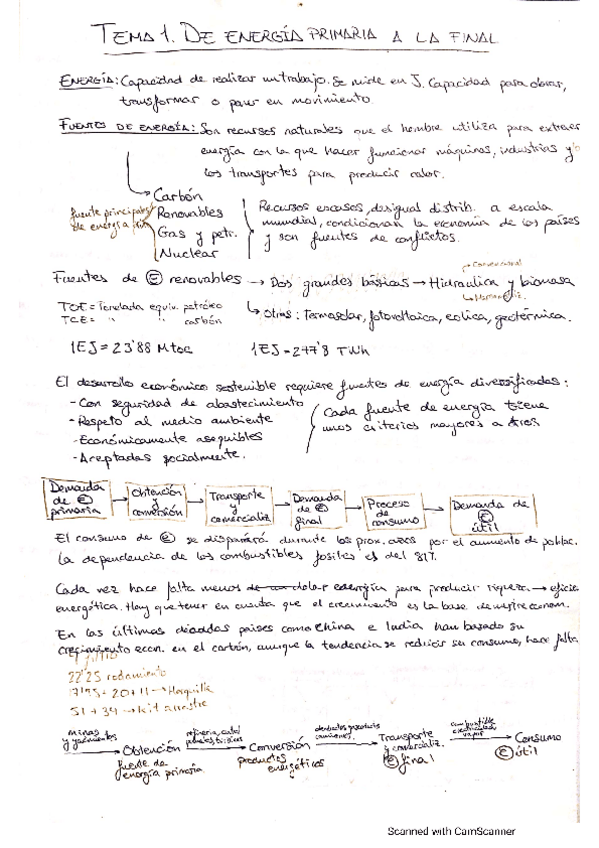 TEMA 1. DE ENERGÍA PRIMARIA A LA FINAL
ENERGÍA: Capacidad de realizar un trabajo. Se mide en J. Capacidad para obrar,
transformar o poner en movimiento.
FUENTES DE ENERGÍA: Son recursos naturales que el hombre utiliza para extraer
energía con la que hacer funcionar máquinas, industrias y
los transportes para producir calor.
Carbón
Renovables
Gas y petr.
Nuclear
fuente principales
de energía
Recursos escasos, desigual distrib. a escala
mundial, condicionan la economía de los países
y son fuentes de conflictos.
Convencional
Fuentes de E renovables → Dos grandes básicas → Hidraulica y biomasa
TOE = Tonelada equiv. petróleo
TCE = " " carbón
Otras: Termosolar, fotovoltaica, eolica, geotérmica.
1EJ = 23'88 Mtoe
1EJ = 277'8 TWh
El desarrollo económico sostenible requiere fuentes de energía diversificadas:
- Con seguridad de abastecimiento
- Respeto al medio ambiente
- Económicamente asequibles
- Aceptadas socialmente.
Cada fuente de energía tiene
unos criterios mayores a otros
Demanda de E primaria → Obtención y conversión → Transporte y comercializ. → Demanda de E final → Proceso de consumo → Demanda de E útil
El consumo de E se disparará durante los prox. años por el aumento de poblac.
La dependencia de los combustibles fosiles es del 81%.
Cada vez hace falta menos energía para producir riqueza → eficie
energética. Hay que tener en cuenta que el crecimiento es la base de econom.
En las últimas décadas países como China e India han basado su
crecimiento econ. en el carbón, aunque la tendencia es reducir su consumo, hace falta
22'25 rodamiento
20 + 11 → Horquilla
51 + 34 → kit arrastre
minas y yacimientos → Obtención fuente de energía primaria
→ Conversión productos energéticos
→ Transporte y comercializ. E final
combustible electricidad vapor → Consumo E útil
Scanned with CamScanner